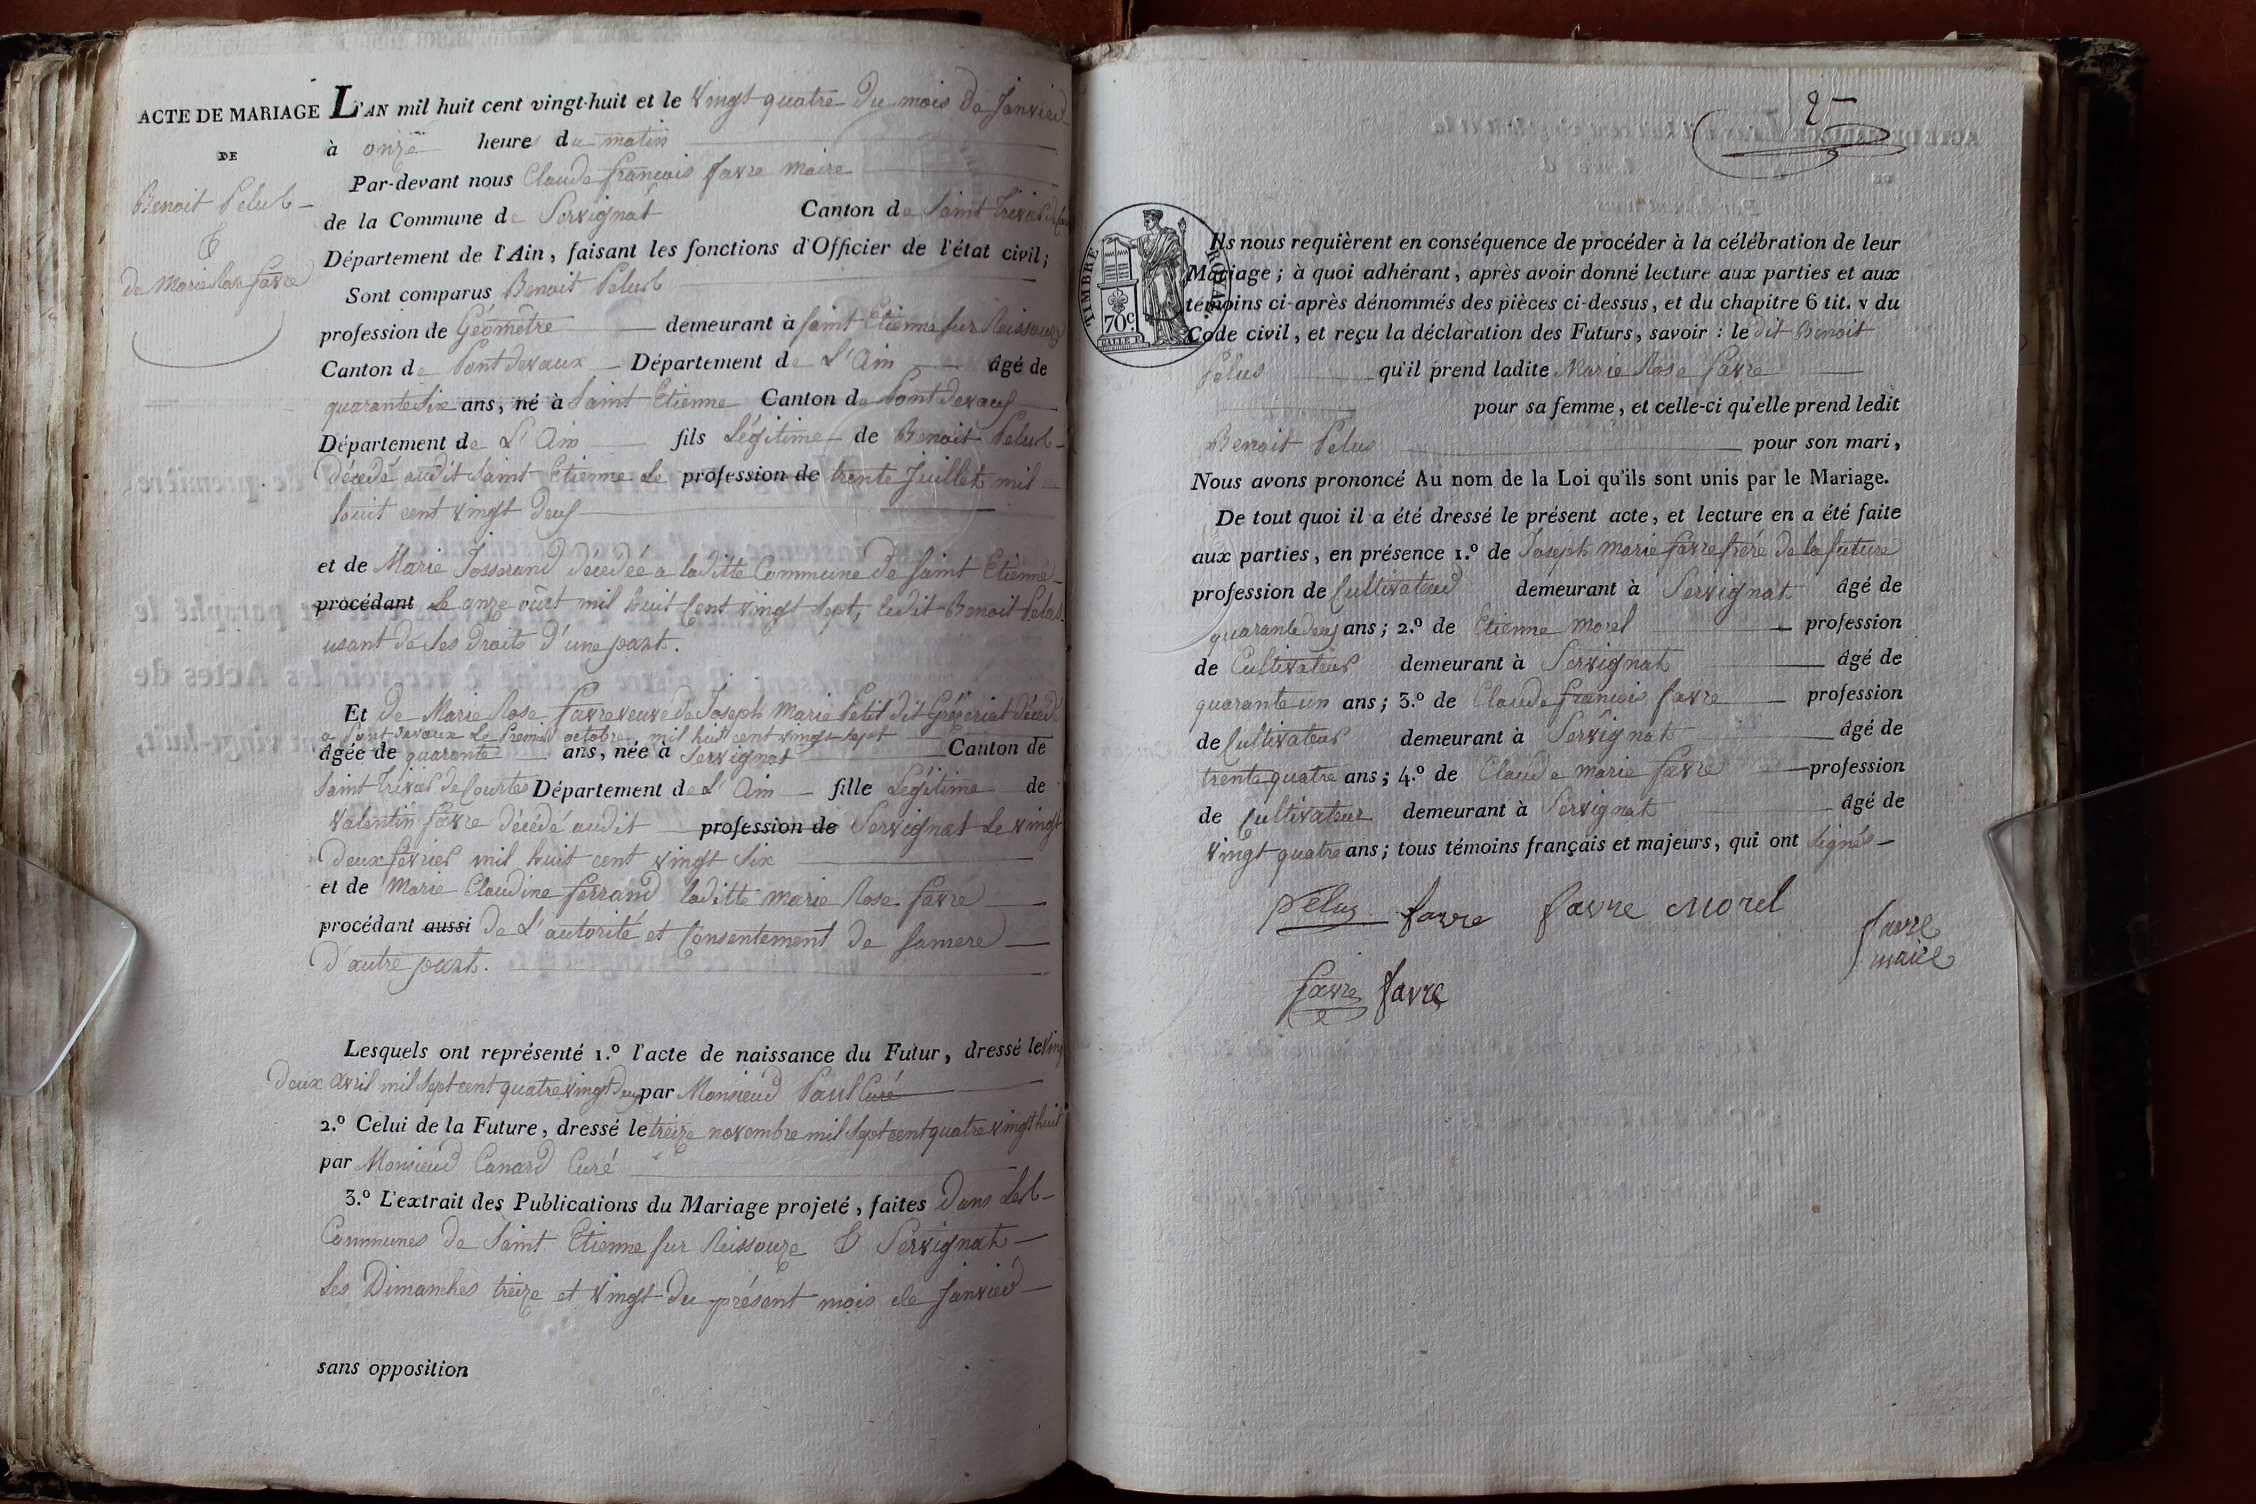 ACTE DE MARIAGE
DE
Benoit Pelus
&
de Marie Rose favre
L'AN mil huit cent vingt-huit et le vingt quatre du mois de Janvier
à onze heures du matin
Par-devant nous Claude françois favre maire
de la Commune de Servignat Canton de Saint Trivier de
Département de l'Ain, faisant les fonctions d'Officier de l'état civil;
Sont comparus Benoit Pelus
profession de Géomètre demeurant à Saint Etienne sur Reissouze
Canton de Pontdevaux Département de L'Ain âgé de
quarante six ans, né à Saint Etienne Canton de Pontdevaux
Département de L'Ain fils Légitime de Benoit Pelus
décédé audit Saint Etienne le profession de trente Juillet mil
huit cent vingt deux
et de Marie Josserand décédée a laditte Commune de Saint Etienne
procédant le onze oût mil huit cent vingt sept, ledit Benoit Pelus
usant de ses droits d'une part.
Et de Marie Rose favre veuve de Joseph Marie Petit dit décédé
a Pontdevaux le Premier octobre mil huit cent vingt sept
âgée de quarante ans, née à Servignat Canton de
Saint Trivier de Courtes Département de L'Ain fille Légitime de
Valentin favre décédé audit profession de Servignat le vingt
deux février mil huit cent vingt six
et de Marie Claudine ferrand laditte marie Rose favre
procédant aussi de L'autorité et Consentement de sa mere
d'autre part.
Lesquels ont représenté 1.º l'acte de naissance du Futur, dressé le vingt
deux avril mil sept cent quatre vingt deux par Monsieur Paul Curé
2.º Celui de la Future, dressé le treize novembre mil sept cent quatre vingt huit
par Monsieur Canard Curé
3.º L'extrait des Publications du Mariage projeté, faites dans les
Communes de Saint Etienne sur Reissouze & Servignat
les Dimanches treize et vingt du présent mois de Janvier
sans opposition
TIMBRE ROYAL
70 c.
Ils nous requièrent en conséquence de procéder à la célébration de leur
Mariage; à quoi adhérant, après avoir donné lecture aux parties et aux
témoins ci-après dénommés des pièces ci-dessus, et du chapitre 6 tit. v du
Code civil, et reçu la déclaration des Futurs, savoir : le dit Benoit
Pelus qu'il prend ladite Marie Rose favre
pour sa femme, et celle-ci qu'elle prend ledit
Benoit Pelus pour son mari,
Nous avons prononcé Au nom de la Loi qu'ils sont unis par le Mariage.
De tout quoi il a été dressé le présent acte, et lecture en a été faite
aux parties, en présence 1.º de Joseph marie favre frère de la future
profession de Cultivateur demeurant à Servignat âgé de
quarante deux ans; 2.º de Etienne morel profession
de Cultivateur demeurant à Servignat âgé de
quarante un ans; 3.º de Claude françois favre profession
de Cultivateur demeurant à Servignat âgé de
trente quatre ans; 4.º de Claude marie favre profession
de Cultivateur demeurant à Servignat âgé de
vingt quatre ans; tous témoins français et majeurs, qui ont signés
Pelus favre favre Morel
favre
maire
favre favre